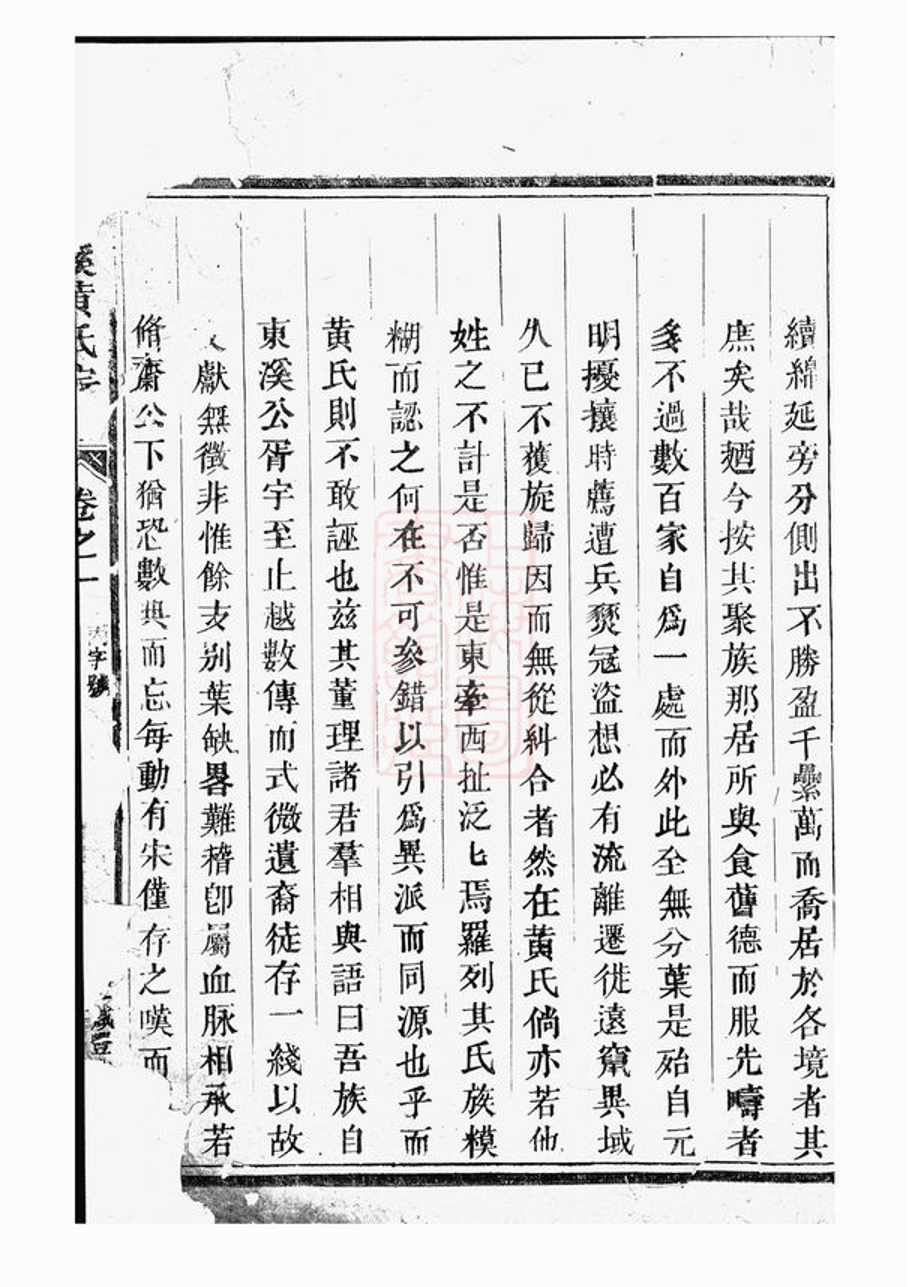 續綿延旁分側出不勝盈千纍萬而喬居於各境者其
庶矣哉廼今按其聚族那居所與食舊德而服先疇者
多不過數百家自爲一處而外此全無分葉是殆自元
明擾攘時薦遭兵燹冦盜想必有流離遷徙遠竄異域
久已不獲旋歸因而無從糾合者然在黄氏倘亦若他
姓之不計是否惟是東牽西扯泛匕焉羅列其氏族模
糊而認之何在不可參錯以引爲異派而同源也乎而
黄氏則不敢誣也兹其董理諸君羣相與語曰吾族自
東溪公胥宇至止越數傳而式微遺裔徒存一綫以故
獻無徵非惟餘支别葉缺畧難稽卽屬血脉相承若
脩齋公下猶恐數典而忘每動有宋僅存之嘆而
溪黄氏宗
卷之一
字號
咸豐